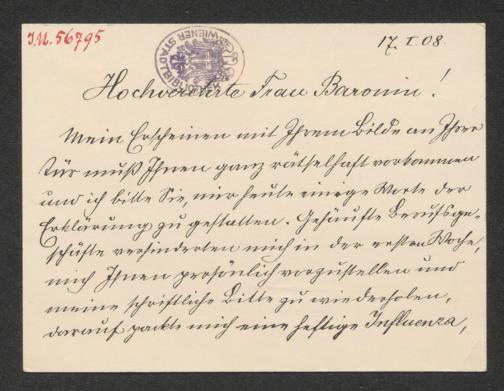 I.N. 56795
17. I. 08.
WIENER STADT
Hochverehrte Frau Baronin!
Mein Erscheinen mit Ihrem Bilde an Ihrer
Tür muß Ihnen ganz rätselhaft vorkommen
und ich bitte Sie, mir heute einige Worte der
Erklärung zu gestatten. Gehäufte Berufsge-
schäfte verhinderten mich in der ersten Woche,
mich Ihnen persönlich vorzustellen und
meine schriftliche Bitte zu wiederholen,
darauf packte mich eine heftige Influenza,